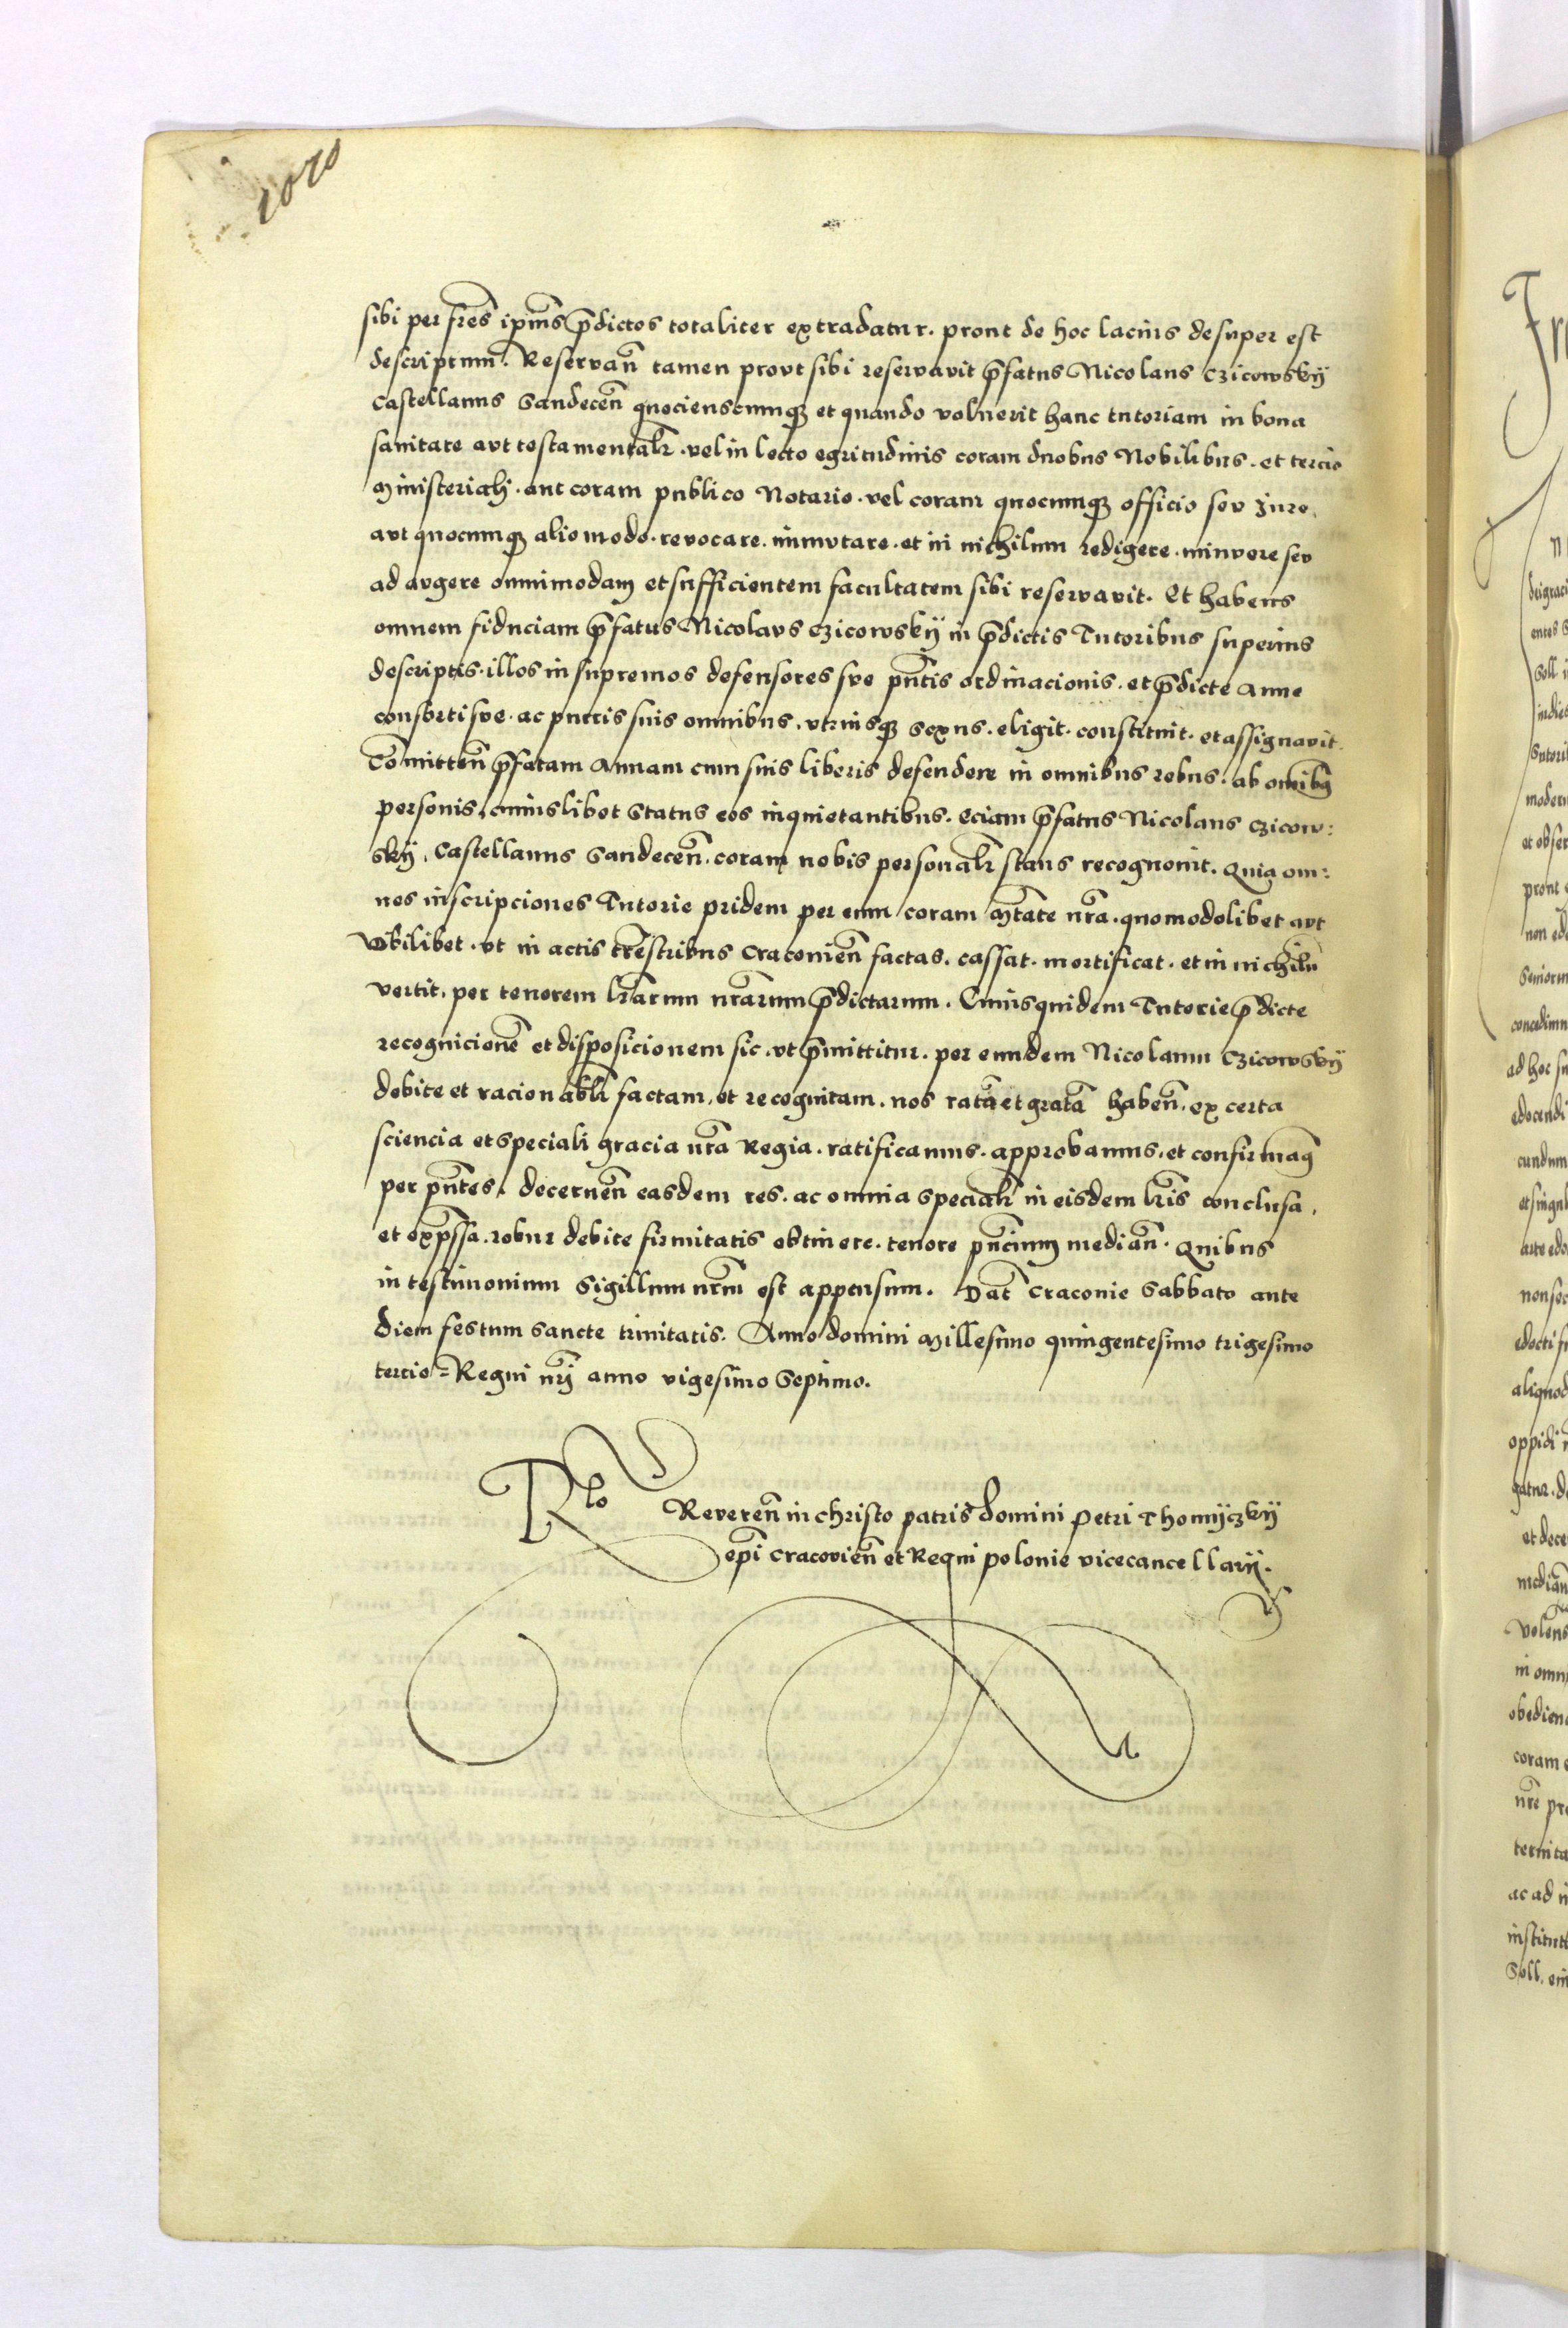 sibi per fr̃es ip̃ius p̃dictos totaliter extradatur. prout de hoc lacius desuper est
descriptum. Reservañ tamen provt sibi reservavit p̃fatus Nicolaus Czicowskÿ
Castellanus Sandeceñ quocienscumqꝫ et quando voluerit hanc tutoriam in bona
sanitate avt testamentalr̃. vel in lecto egritudinis coram duobus Nobilibus. et tercio
Ministeriali. aut coram publico Notario. vel coram quocumqꝫ officio sev Jure.
avt quocumqꝫ alio modo. revocare. inmvtare. et in nichilum redigere. minvere sev
ad avgere omnimodam et sufficientem facultatem sibi reservavit. Et habens
omnem fiduciam p̃fatus Nicolavs Czicowskÿ in p̃dictis Tutoribus superius
descriptis. illos in supremos defensores sve pñtis ordinacionis. et p̃dicte Anne
consorti sve. ac pueris suis omnibus. vtriusqꝫ sexus. eligit. constituit. et assignavit.
Comitteñ p̃fatam Annam cum suis liberis defendere in omnibus rebus. ab omĩbꝯ
personis. cuiuslibet status eos inquietantibus. Eciam p̃fatus Nicolaus Czicow:
skÿ. Castellanus Sandeceñ. coram nobis personalr̃ stans recognovit. Quia om:
nes inscripciones Tutorie pridem per eum coram M̃tate nr̃a. quomodolibet avt
vbilibet. vt in actis tr̃estribus Cracovieñ factas. cassat. mortificat. et in nichilũ
vertit. per tenorem lr̃arum nr̃arum p̃dictarum. Cuiusquidem Tutorie p̃dicte
recognicionẽ et disposicionem sic. vt p̃mittitur. per eundem Nicolaum Czicowskÿ
debite et racionabilr̃ factam. et recognitam. nos ratã et gratã habeñ. ex certa
sciencia et speciali gracia nr̃a Regia. ratificamus. approbamus. et confirmamꝯ
per pñtes. decerneñ easdem res. ac omnia specialr̃ in eisdem lr̃is conclusa.
et exp̃ssa. robur debite firmitatis obtinere. tenore pñcium mediañ. Quibus
in testimonium Sigillum nr̃m est appensum. Dat̃ Cracovie Sabbato ante
diem festum Sancte trinitatis. Anno domini Millesimo quingentesimo trigesimo
tercio = Regni nr̃i anno vigesimo Septimo.
Rlo Revereñ in christo patris domini Petri Thomÿczkÿ
ep̃i Cracovieñ et Regni polonie vicecancellarij.